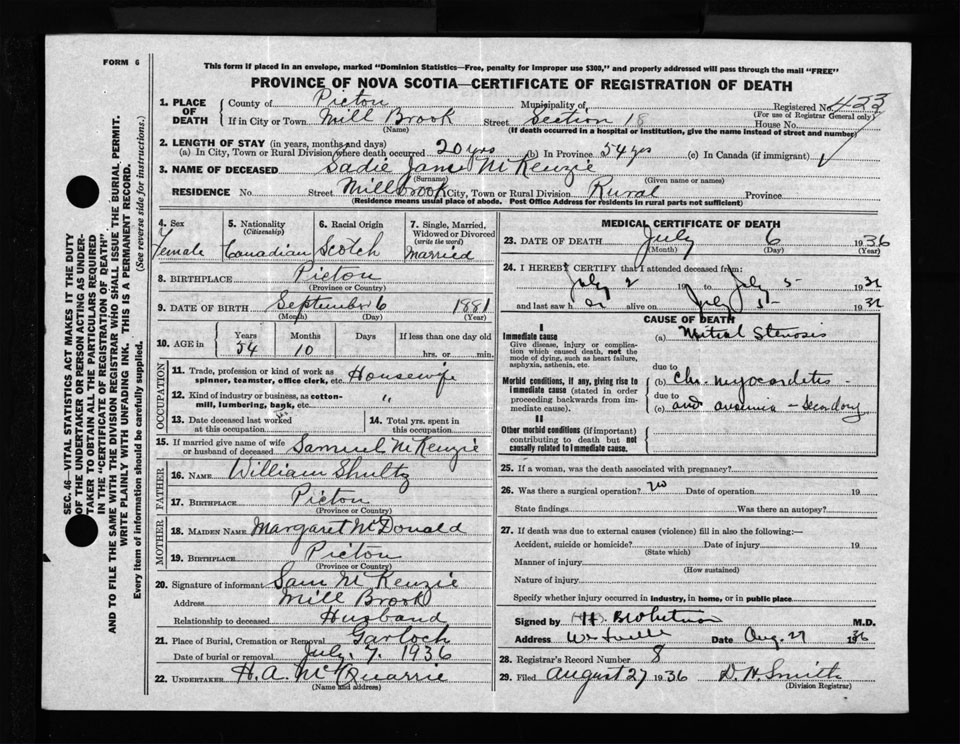 FORM 6
This form if placed in an envelope, marked "Dominion Statistics—Free, penalty for improper use $300," and properly addressed will pass through the mail "FREE"
PROVINCE OF NOVA SCOTIA—CERTIFICATE OF REGISTRATION OF DEATH
SEC. 46—VITAL STATISTICS ACT MAKES IT THE DUTY
OF THE UNDERTAKER OR PERSON ACTING AS UNDER-
TAKER TO OBTAIN ALL THE PARTICULARS REQUIRED
IN THE "CERTIFICATE OF REGISTRATION OF DEATH"
AND TO FILE THE SAME WITH THE DIVISION REGISTRAR WHO SHALL ISSUE THE BURIAL PERMIT.
WRITE PLAINLY WITH UNFADING INK. THIS IS A PERMANENT RECORD.
Every item of information should be carefully supplied. (See reverse side for instructions.)
1. PLACE OF DEATH
County of Pictou Municipality of Registered No. 423
(For use of Registrar General only)
If in City or Town Mill Brook Street Section 18 House No.
(Name) (If death occurred in a hospital or institution, give the name instead of street and number)
2. LENGTH OF STAY (in years, months and days)
(a) In City, Town or Rural Division where death occurred 20 yrs (b) In Province 54 yrs (c) In Canada (if immigrant) ✓
3. NAME OF DECEASED Sadie Jane McKenzie
(Surname) (Given name or names)
RESIDENCE No. Street Millbrook City, Town or Rural Division Rural Province
(Residence means usual place of abode. Post Office Address for residents in rural parts not sufficient)
4. Sex Female
5. Nationality (Citizenship) Canadian
6. Racial Origin Scotch
7. Single, Married, Widowed or Divorced (write the word) Married
8. BIRTHPLACE Pictou
(Province or Country)
9. DATE OF BIRTH September 6 1881
(Month) (Day) (Year)
10. AGE in Years 54 Months 10 Days If less than one day old hrs. or min.
OCCUPATION
11. Trade, profession or kind of work as spinner, teamster, office clerk, etc. Housewife
12. Kind of industry or business, as cotton-mill, lumbering, bank, etc. "
13. Date deceased last worked at this occupation
14. Total yrs. spent in this occupation
15. If married give name of wife or husband of deceased Samuel McKenzie
FATHER
16. NAME William Shultz
17. BIRTHPLACE Pictou
(Province or Country)
MOTHER
18. MAIDEN NAME Margaret McDonald
19. BIRTHPLACE Pictou
(Province or Country)
20. Signature of informant Sam McKenzie
Address Mill Brook
Relationship to deceased Husband
21. Place of Burial, Cremation or Removal Garloch
Date of burial or removal July, 7, 1936
22. UNDERTAKER H.A. McQuarrie
(Name and address)
MEDICAL CERTIFICATE OF DEATH
23. DATE OF DEATH July 6 1936
(Month) (Day) (Year)
24. I HEREBY CERTIFY that I attended deceased from:
July 2 to July 5 193
and last saw h er alive on July 5 193
CAUSE OF DEATH
I
Immediate cause
Give disease, injury or complication which caused death, not the mode of dying, such as heart failure, asphyxia, asthenia, etc.
(a) Mitral Stenosis
due to
Morbid conditions, if any, giving rise to immediate cause (stated in order proceeding backwards from immediate cause).
(b) Chr. myocarditis -
due to
(c) and anaemia - secondary
II
Other morbid conditions (if important) contributing to death but not causally related to immediate cause.
25. If a woman, was the death associated with pregnancy?
26. Was there a surgical operation? no Date of operation 19
State findings Was there an autopsy?
27. If death was due to external causes (violence) fill in also the following:—
Accident, suicide or homicide? Date of injury 19
(State which)
Manner of injury
(How sustained)
Nature of injury
Specify whether injury occurred in industry, in home, or in public place
Signed by M.D.
Address Westville Date Aug. 27 1936
28. Registrar's Record Number 8
29. Filed August 27 1936 D. H. Smith
(Division Registrar)